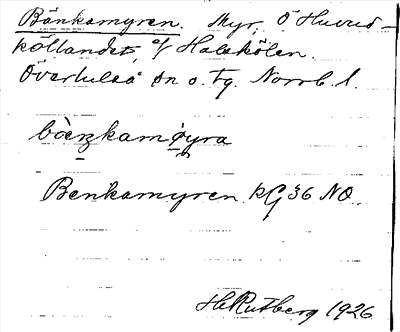 Bänkamyren. Myr, Ö Huvud-
köllandet, af Halskölen.
Övertuleå sn o. tg. Norrb. l.
Benkamyren kG 36 NO.
H. Rutberg 1926